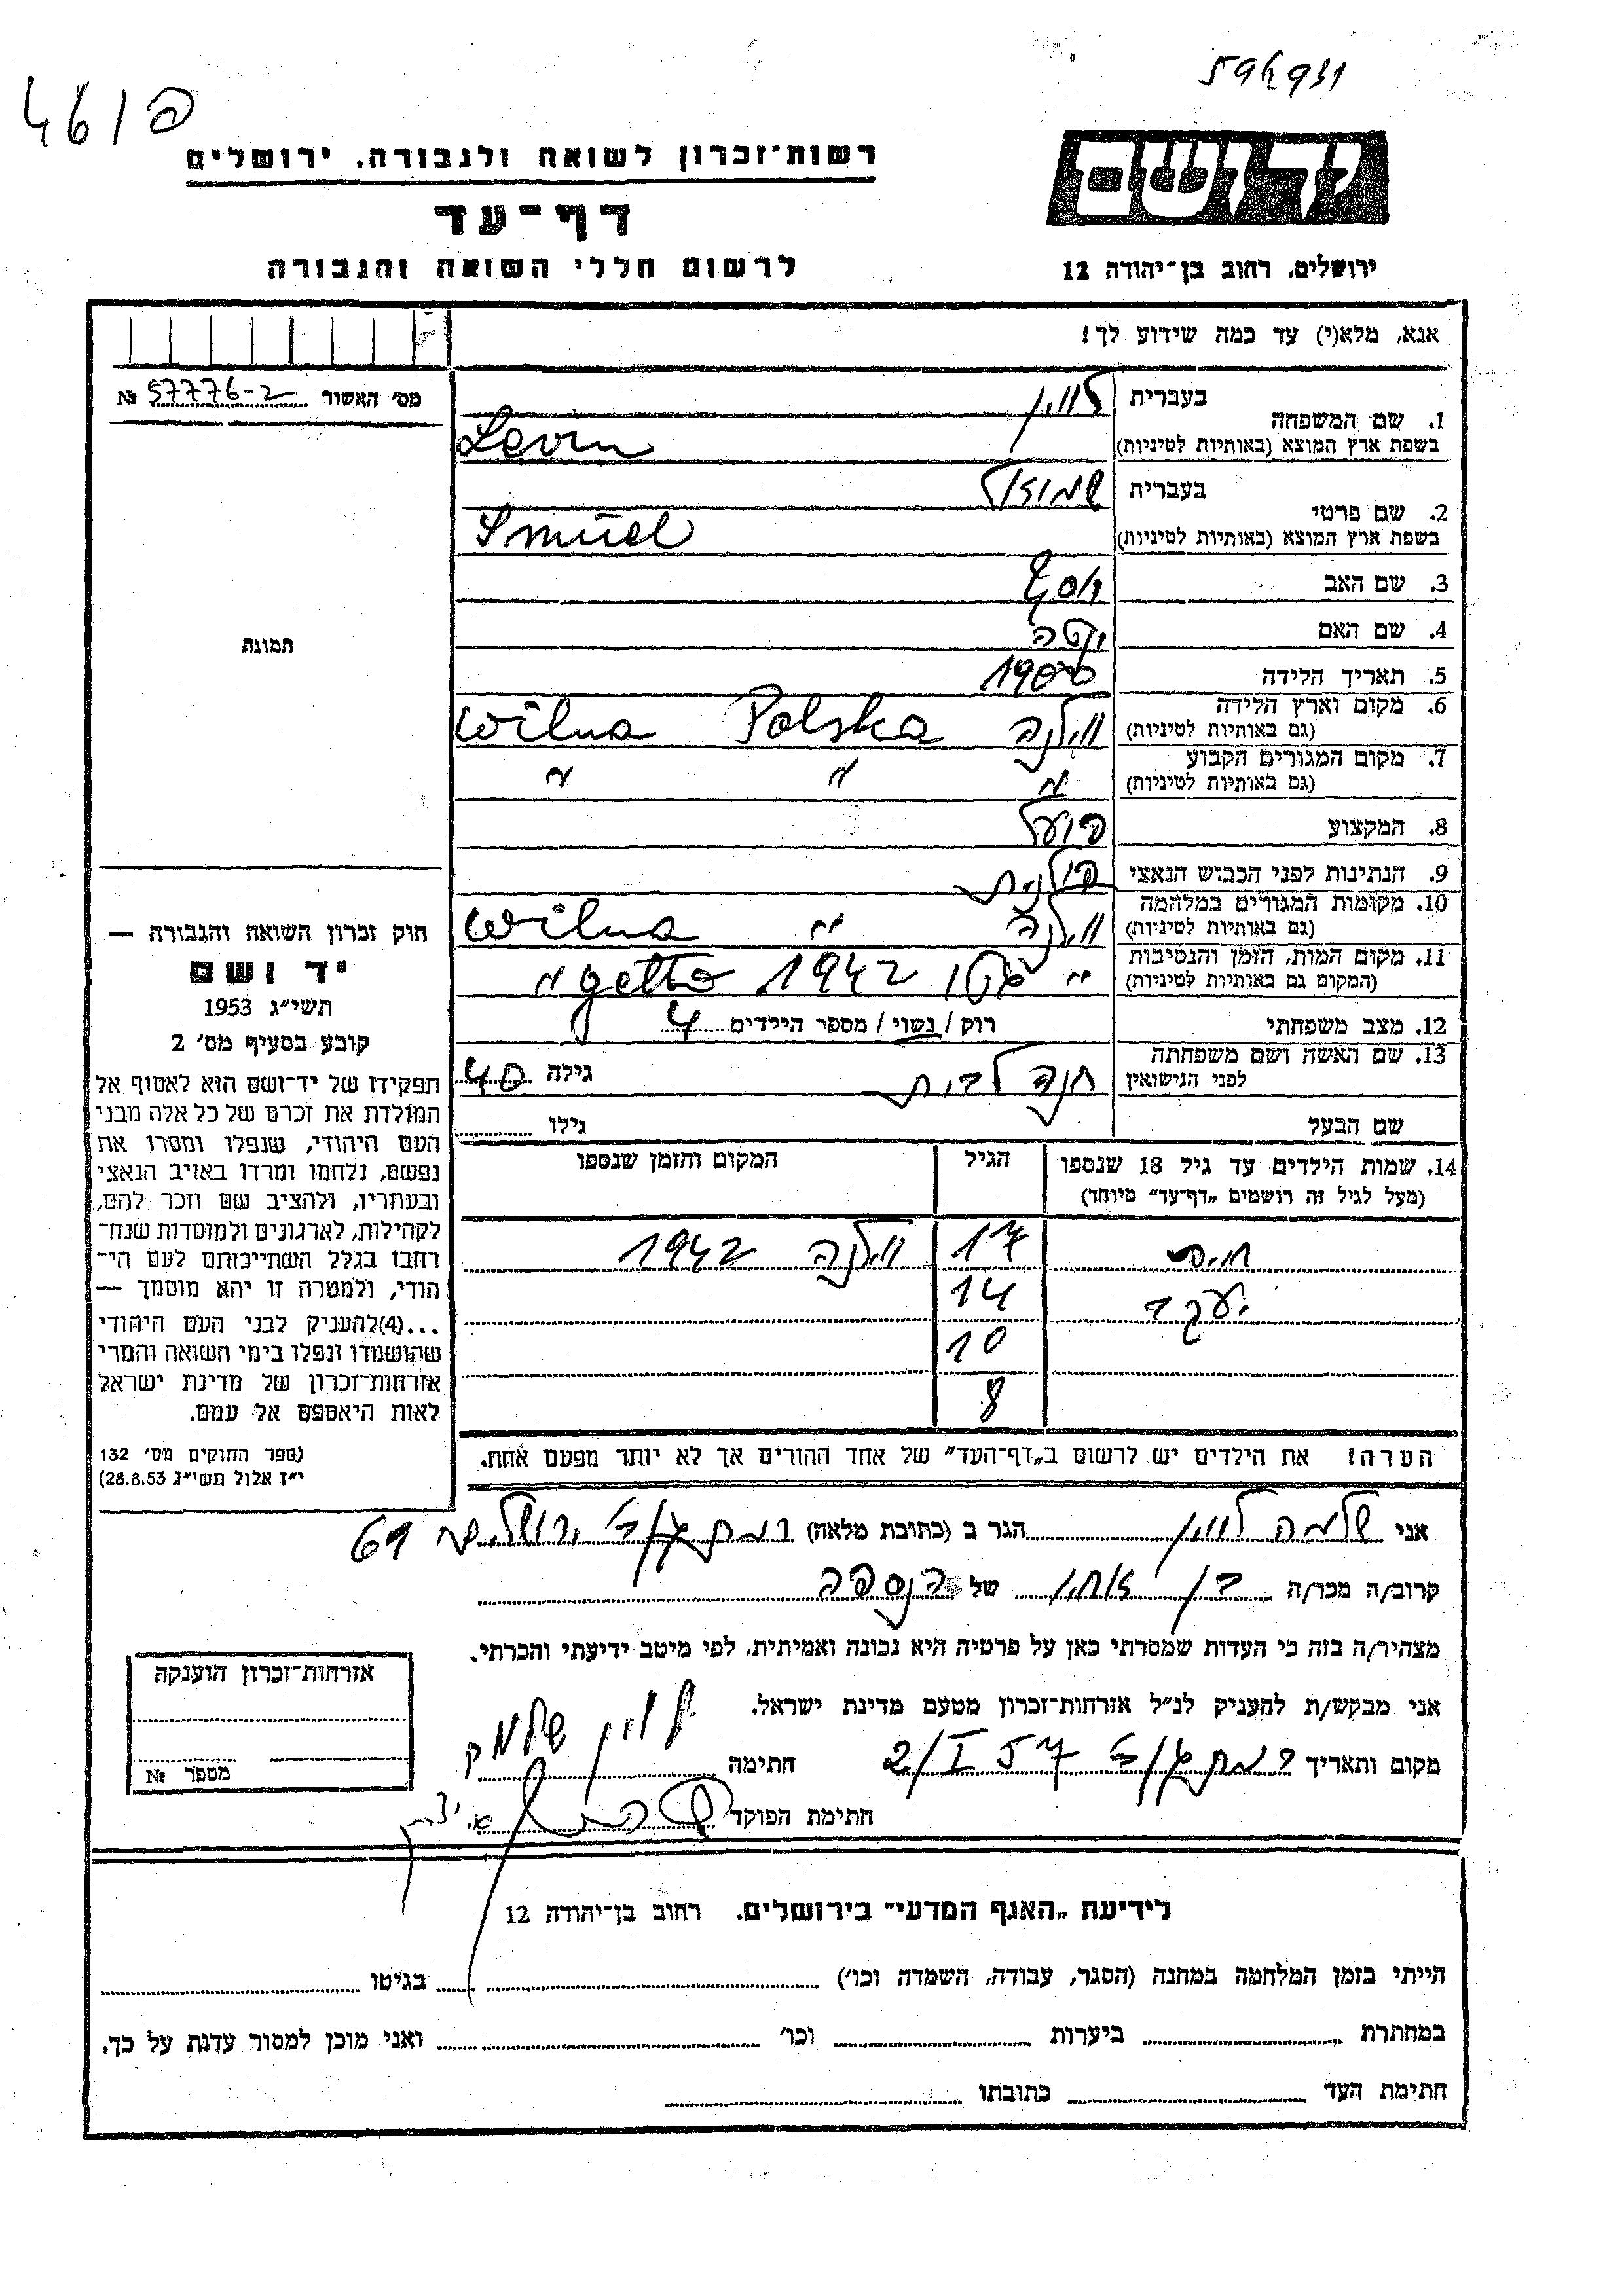 596931
461פ
ידושם
רשות־זכרון לשואה ולגבורה, ירושלים
דף־עד
לרשום חללי השואה והגבורה
ירושלים, רחוב בן־יהודה 12
אנא, מלא(י) עד כמה שידוע לך!
מס׳ האשור 57776-2 №
תמונה
חוק זכרון השואה והגבורה —
יד ושם
תשי״ג 1953
קובע בסעיף מס׳ 2
תפקידו של יד־ושם הוא לאסוף אל
המולדת את זכרם של כל אלה מבני
העם היהודי, שנפלו ומסרו את
נפשם, נלחמו ומרדו באויב הנאצי
ובעוזריו, ולהציב שם וזכר להם,
לקהילות, לארגונים ולמוסדות שנח־
רבו בגלל השתייכותם לעם הי־
הודי, ולמטרה זו יהא מוסמך —
...(4)להעניק לבני העם היהודי
שהושמדו ונפלו בימי השואה והמרי
אזרחות־זכרון של מדינת ישראל
לאות היאספם אל עמם.
(ספר החוקים מס׳ 132
י״ז אלול תשי״ג 28.8.53)
1. שם המשפחה בעברית לוין
בשפת ארץ המוצא (באותיות לטיניות) Levin
2. שם פרטי בעברית שמואל
בשפת ארץ המוצא (באותיות לטיניות) Smuel
3. שם האב יוסף
4. שם האם
5. תאריך הלידה 1900
6. מקום וארץ הלידה
(גם באותיות לטיניות) וילנה Polska Wilna
7. מקום המגורים הקבוע
(גם באותיות לטיניות) " " "
8. המקצוע פועל
9. הנתינות לפני הכבוש הנאצי פולנית
10. מקומות המגורים במלחמה
(גם באותיות לטיניות) וילנה " Wilna
11. מקום המות, הזמן והנסיבות
(המקום גם באותיות לטיניות) " גטו 1942 getto "
12. מצב משפחתי רוק / נשוי / מספר הילדים 4
13. שם האשה ושם משפחתה
לפני הנישואין חנה גילה 40
שם הבעל גילו
14. שמות הילדים עד גיל 18 שנספו הגיל המקום והזמן שנספו
(מעל לגיל זה רושמים „דף־עד״ מיוחד)
17 וילנה 1942
יעקב 14
10
8
הערה! את הילדים יש לרשום ב„דף־העד״ של אחד ההורים אך לא יותר מפעם אחת.
אני שלמה לוין הגר ב (כתובת מלאה) ירושלים 69
קרוב/ה מכר/ה בן אחין של הנספה
מצהיר/ה בזה כי העדות שמסרתי כאן על פרטיה היא נכונה ואמיתית, לפי מיטב ידיעתי והכרתי.
אני מבקש/ת להעניק לנ״ל אזרחות־זכרון מטעם מדינת ישראל.
מקום ותאריך 2/I 57 חתימה לוין שלמה
חתימת הפוקד
אזרחות־זכרון הוענקה
מספר №
לידיעת „האגף המדעי״ בירושלים, רחוב בן־יהודה 12
הייתי בזמן המלחמה במחנה (הסגר, עבודה, השמדה וכו׳) בגיטו
במחתרת ביערות וכו׳ ואני מוכן למסור עדות על כך.
חתימת העד כתובתו